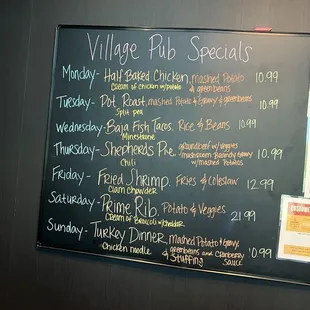 Village Pub Specials
Monday - Half Baked Chicken, mashed Potato 10.99
Cream of chicken w/potato & greenbeans
Tuesday - Pot Roast, mashed Potato & gravy & greenbeans 10.99
Split pea
Wednesday - Baja Fish Tacos. Rice & Beans 10.99
Minestrone
Thursday - Shepherds Pie groundbeef w/veggies
mushroom Brandy gravy 10.99
Chili w/mashed Potatos
Friday - Fried Shrimp. Fries & Coleslaw 12.99
Clam Chowder
Saturday - Prime Rib. Potato & Veggies 21.99
Cream of Broccoli w/cheddar
Sunday - Turkey Dinner, mashed Potato & gravy.
Chicken noodle greenbeans and Cranberry 10.99
& Stuffing Sauce